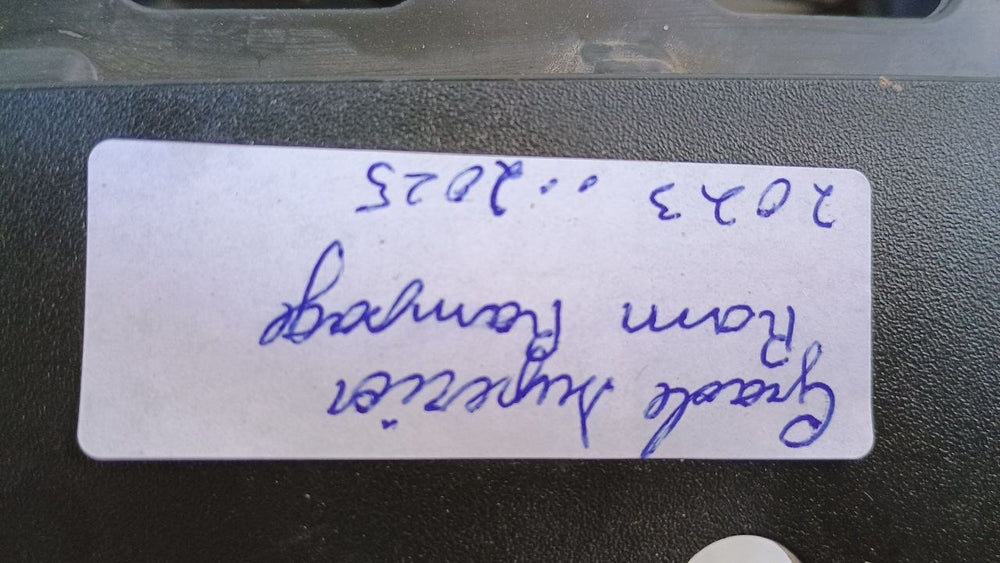 Grade Superior
Ram Rampage
2023 .. 2025